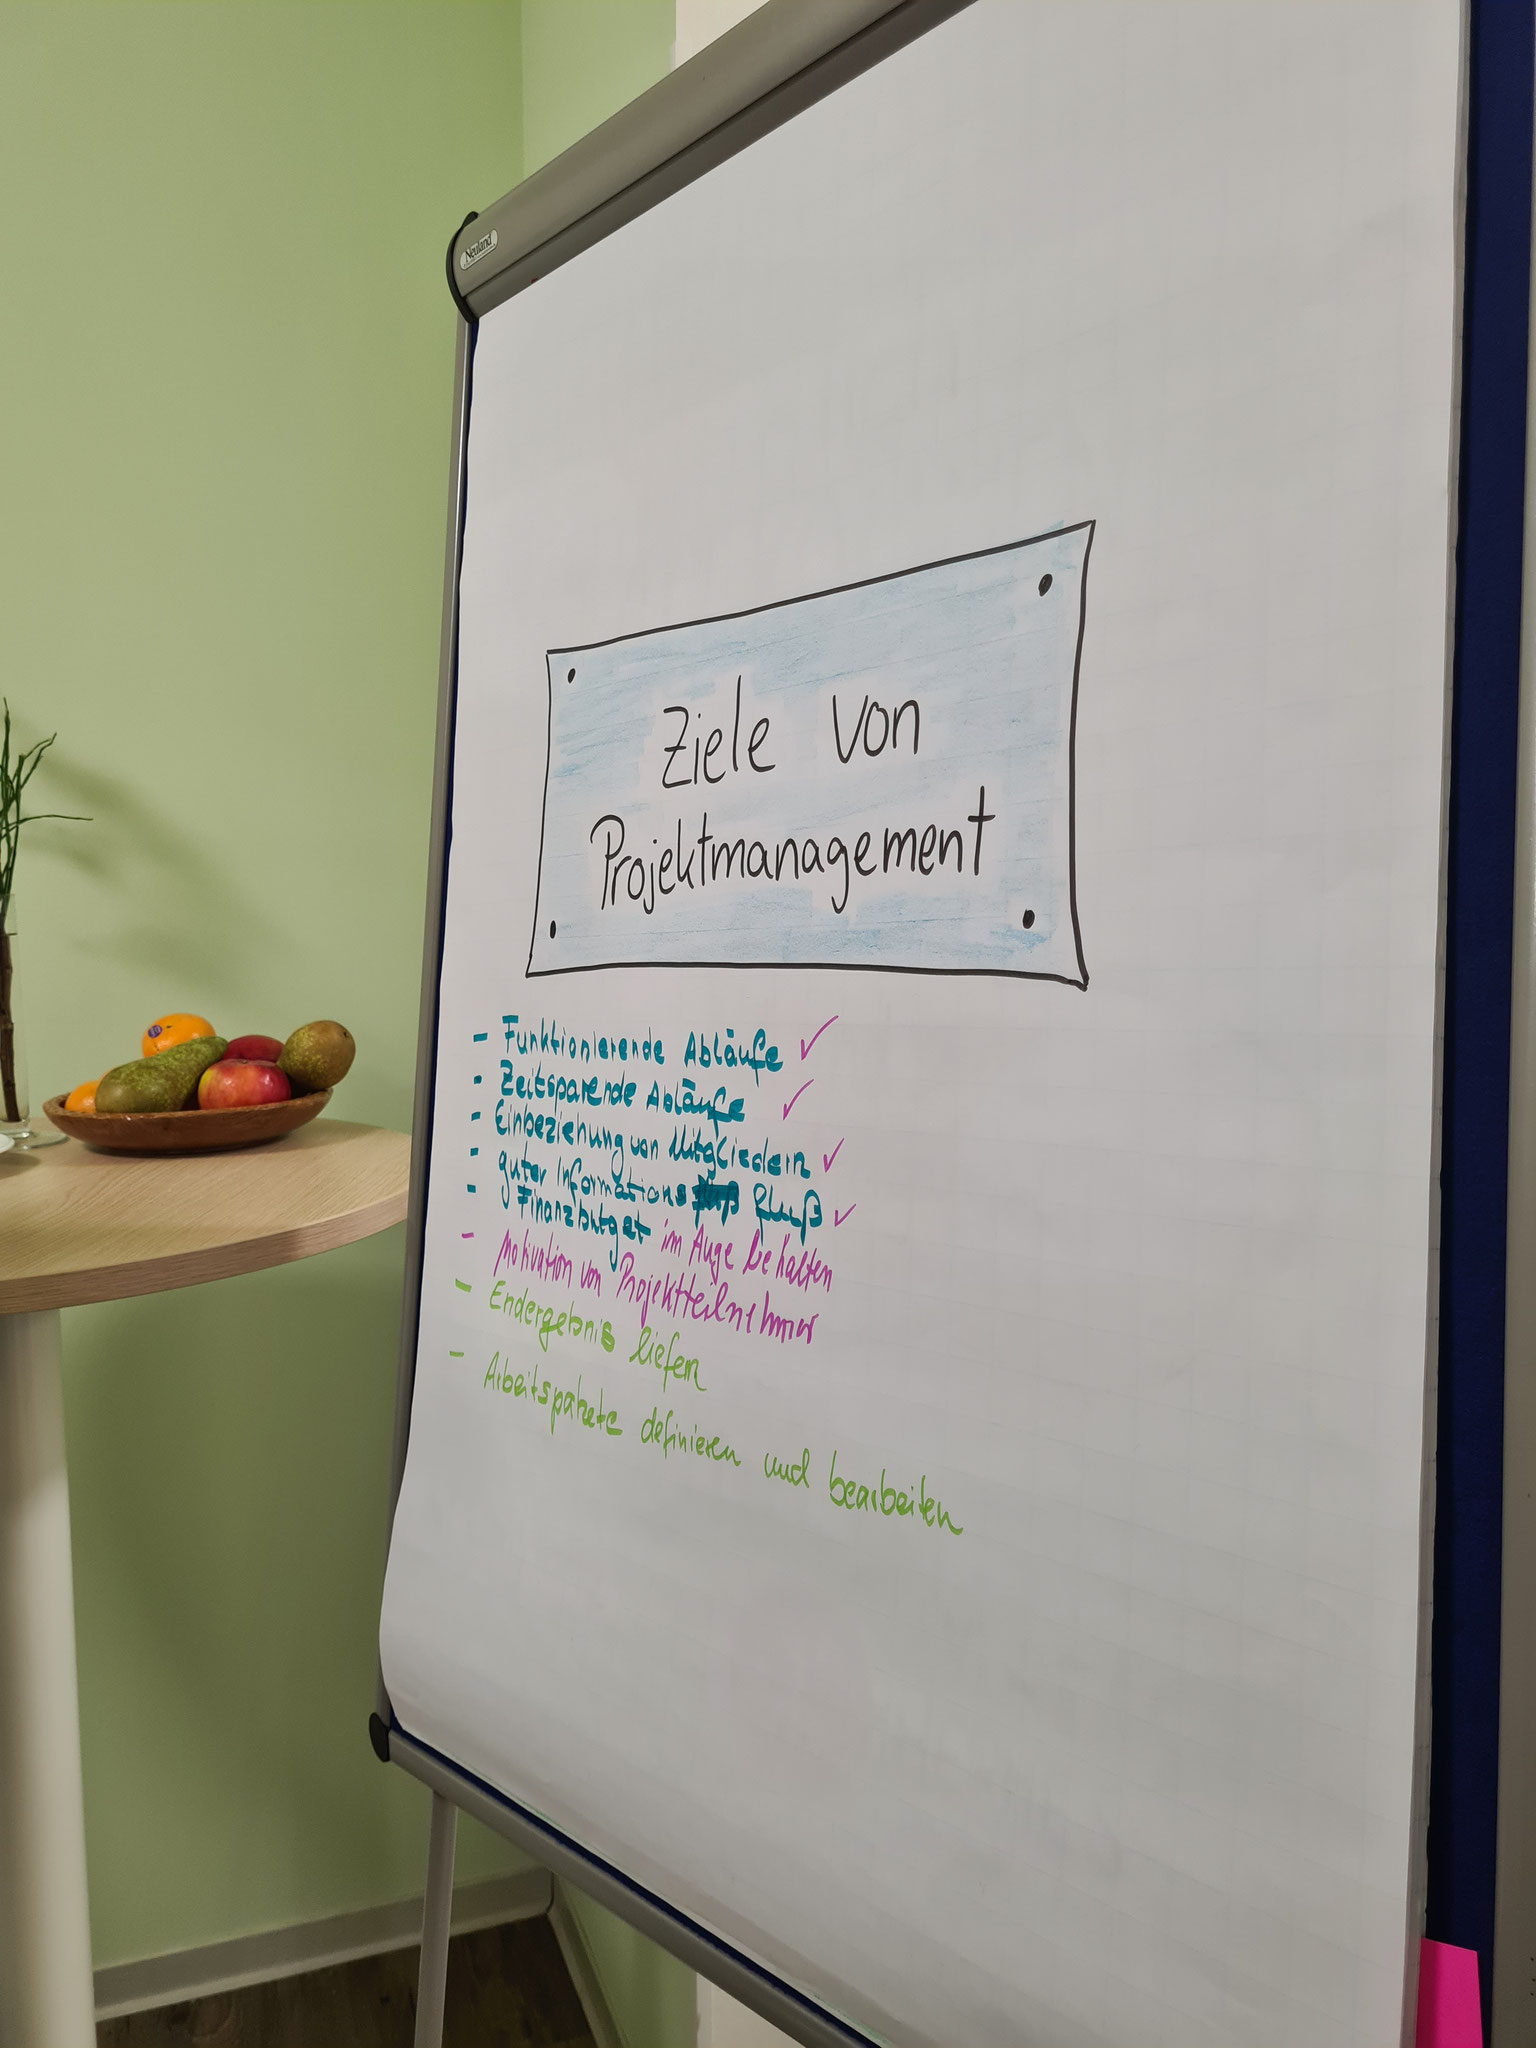 Neuland
Ziele von
Projektmanagement
- Funktionierende Abläufe ✓
- Zeitsparende Abläufe ✓
- Einbeziehung von Mitgliedern ✓
- guter Informations fluß ✓
- Finanzbutget im Auge behalten
- Motivation von Projektteilnehmer
- Endergebnis liefern
- Arbeitspakete definieren und bearbeiten